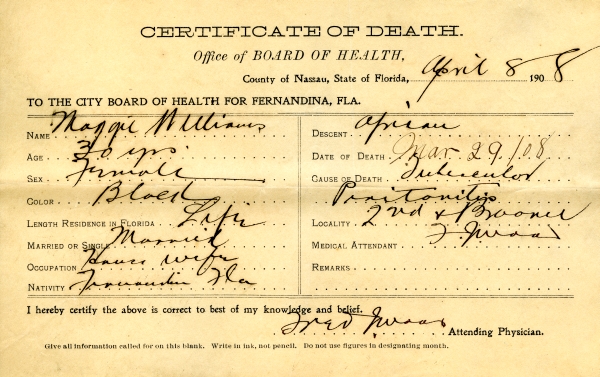 CERTIFICATE OF DEATH.
Office of BOARD OF HEALTH,
County of Nassau, State of Florida, April 8 1908
TO THE CITY BOARD OF HEALTH FOR FERNANDINA, FLA.
NAME Maggie Williams
AGE 30 yrs.
SEX Female
COLOR Black
LENGTH RESIDENCE IN FLORIDA Life
MARRIED OR SINGLE Married
OCCUPATION House wife
NATIVITY Fernandina Fla
DESCENT African
DATE OF DEATH Mar 29/08
CAUSE OF DEATH Tubercular
Peritonitis
LOCALITY 2nd &
MEDICAL ATTENDANT
REMARKS
I hereby certify the above is correct to best of my knowledge and belief.
Attending Physician.
Give all information called for on this blank. Write in ink, not pencil. Do not use figures in designating month.